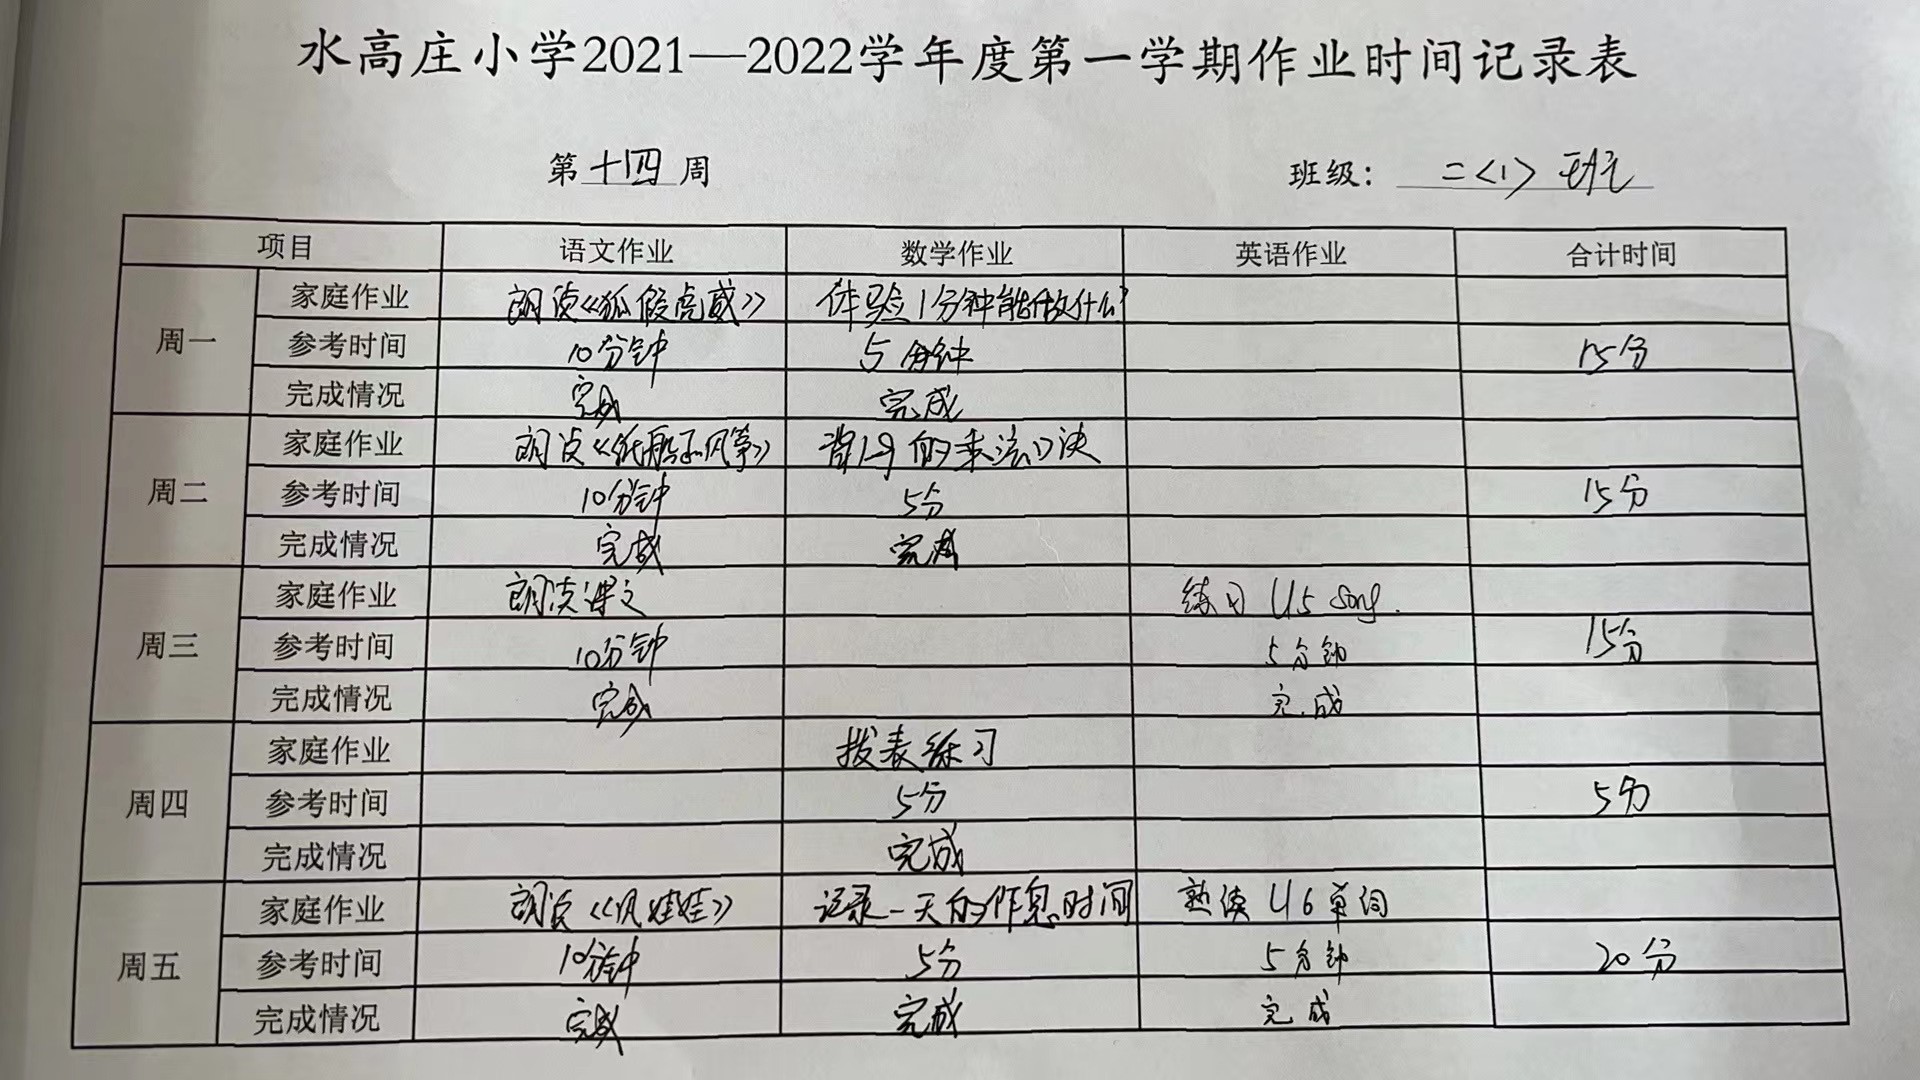 水高庄小学2021—2022学年度第一学期作业时间记录表
第十四周 班级： 二<1> 班
项目 语文作业 数学作业 英语作业 合计时间
周一 家庭作业 朗读《狐假虎威》 体验1分钟能做什么?
参考时间 10分钟 5分钟 15分
完成情况 完成 完成
周二 家庭作业 朗读《纸船和风筝》 背1-9的乘法口决
参考时间 10分钟 5分 15分
完成情况 完成 完成
周三 家庭作业 朗读课文 练习 U5 song.
参考时间 10分钟 5分钟 15分
完成情况 完成 完成
周四 家庭作业 拨表练习
参考时间 5分 5分
完成情况 完成
周五 家庭作业 朗读《风娃娃》 记录一天的作息时间 熟读 U6 单词
参考时间 10分钟 5分 5分钟 20分
完成情况 完成 完成 完成